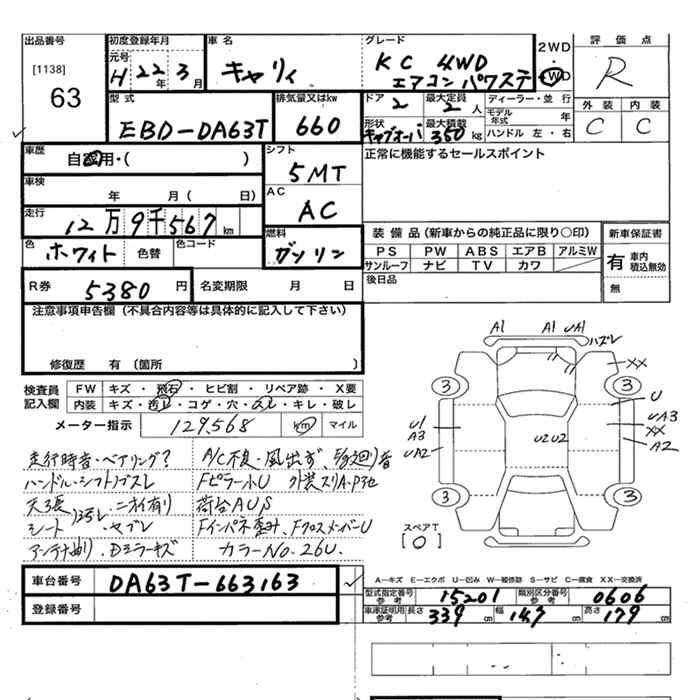 出品番号
[1138]
63
初度登録年月
元号
H 22年 3月
車名
キャリィ
グレード
KC 4WD
エアコン パワステ
2WD
・
4WD
評価点
R
外装 内装
C C
型式
EBD-DA63T
排気量又はkw
660
ドア
2
最大定員
2人
形状
キャブオーバ
最大積載
350kg
ディーラー・並行
モデル年式 年
ハンドル 左・右
車歴
自家用・( )
シフト
5MT
正常に機能するセールスポイント
車検
年 月( 日)
AC
AC
走行
12万9千567km
燃料
ガソリン
色
ホワイト
色替
色コード
装備品(新車からの純正品に限り○印)
PS PW ABS エアB アルミW
サンルーフ ナビ TV カワ
新車保証書
有 車内積込無効
無
R券
5380円
名変期限 月 日
後日品
注意事項申告欄(不具合内容等は具体的に記入して下さい)
修復歴 有(箇所 )
検査員記入欄
FW キズ・飛石・ヒビ割・リペア跡・X要
内装 キズ・汚レ・コゲ・穴・スレ・キレ・破レ
メーター指示
129,568
km マイル
走行時音・ベアリング?
ハンドル・シフトノブスレ
天張 汚レ・ニオイ有り
シート ・ヤブレ
アンテナ曲り.Dミラーキズ
A/C不良・風出ず
Fピラー小U
荷台AUS
Fインパネ歪み、FクロスメンバーU
カラーNo.26U.
A1 A1 UA1
ハズレ
XX
3 3
U
U1
A3
UA2
U2U2
UA3
XX
A2
3 3
スペアT
[O]
車台番号
DA63T-663163
登録番号
A―キズ E―エクボ U―凹み W―補修跡 S―サビ C―腐食 XX―交換済
型式指定番号 参考
15201
類別区分番号 参考
0606
車庫証明用 参考
長さ 339cm
幅 147cm
高さ 179cm